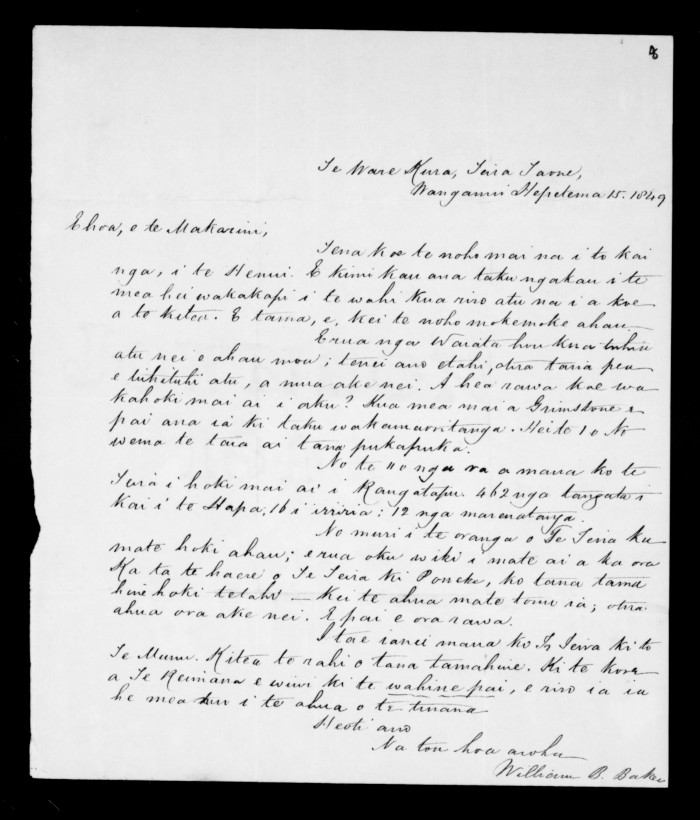 8
Te Ware Kura, Teira Taone,
Wanganui Hepetema 15. 1849
Ehoa, e te Makarini,
Tena koe te noho mai na i to kai
nga, i te Henui. E kimi kau ana taku ngakau i te
mea hei wakakapi i te wahi kua riro atu na i a koe
a to kitea. E tama, e, kei te noho mokemoke ahau.
Erua nga Waiata hou kua tuhia
atu nei e ahau mou; tenei ano etahi, otira taria pea
e tuhituhi atu, a mua ake nei. A hea rawa koe wa
kahoki mai ai i aku? Kua mea mai a Grimstone e
pai ana ia ki taku wakamaoritanga. Hei te 1 o No
wema te taia ai tana pukapuka.
No te 11 o nga ra a maua ko te
Teira i hoki mai ai i Rangatapu. 462 nga tangata i
kai i te Hapa; 16 i iriiria: 12 nga marenatanga.
No muri i te oranga o Te Teira ku
mate hoki ahau; erua oku wiki i mate ai a ka ora
Ka ta te haere o Te Teira ki Poneke, ko tana tama
hine hoki tetahi — Kei te ahua mate tonu ia; otira
ahua ora ake nei. E pai e ora rawa.
I tae ianei maua ko Te Teira ki to
Te Mumu. Kitea te rahi o tana tamahine. Ki te kore
a Te Reimana e wiwi ki te wahine pai, e riro ia ia
he mea i te ahua o te tinana
Heoti ano
Na tou hoa aroha
William B. Baker